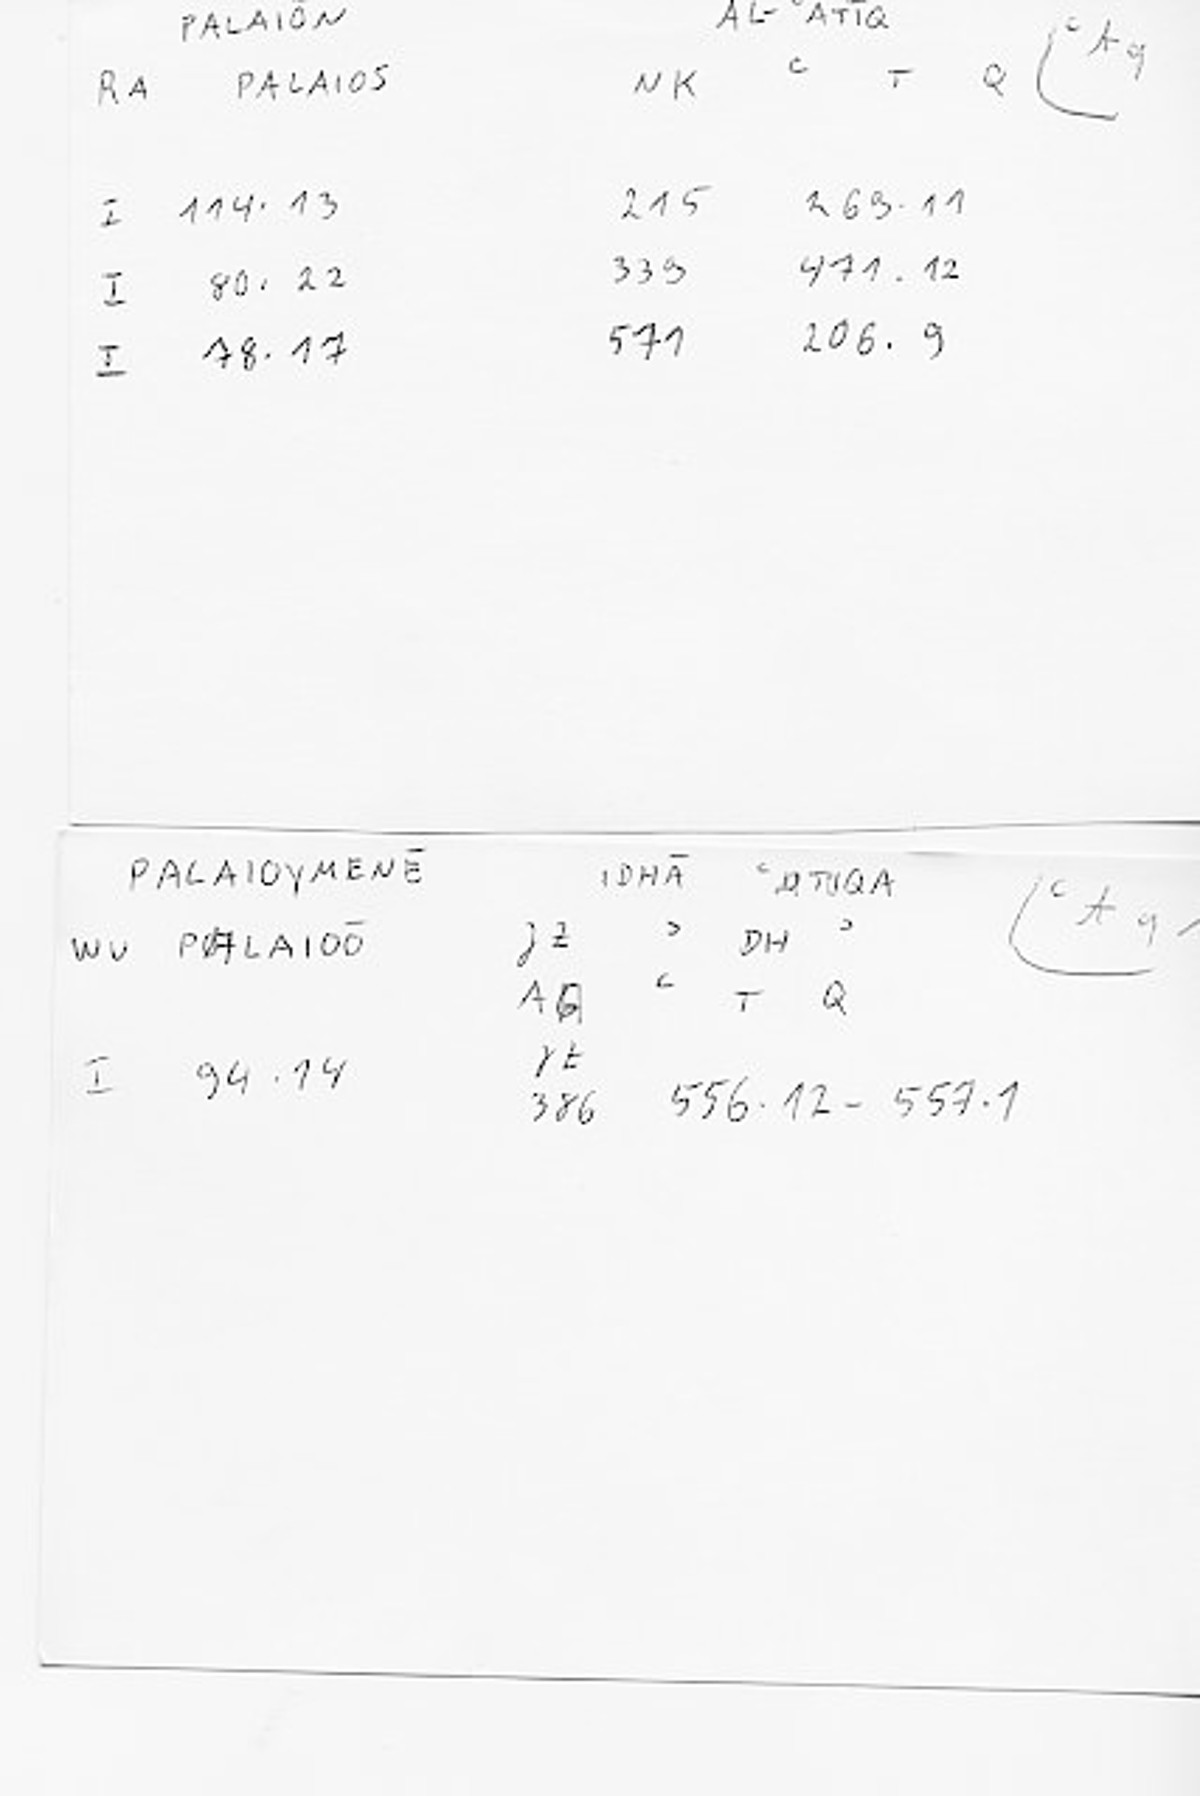 PALAIŌN AL-ʿATĪQ
RA PALAIOS NK ʿ T Q (ʿAq
I 114.13 215 269.11
I 80.22 339 471.12
I 78.17 571 206.9
PALAIOYMENĒ IDHĀ ʿUTIQA (ʿAq
WV PALAIOŌ ʾ DH ʾ
ʿ T Q
I 94.14
386 556.12 - 557.1